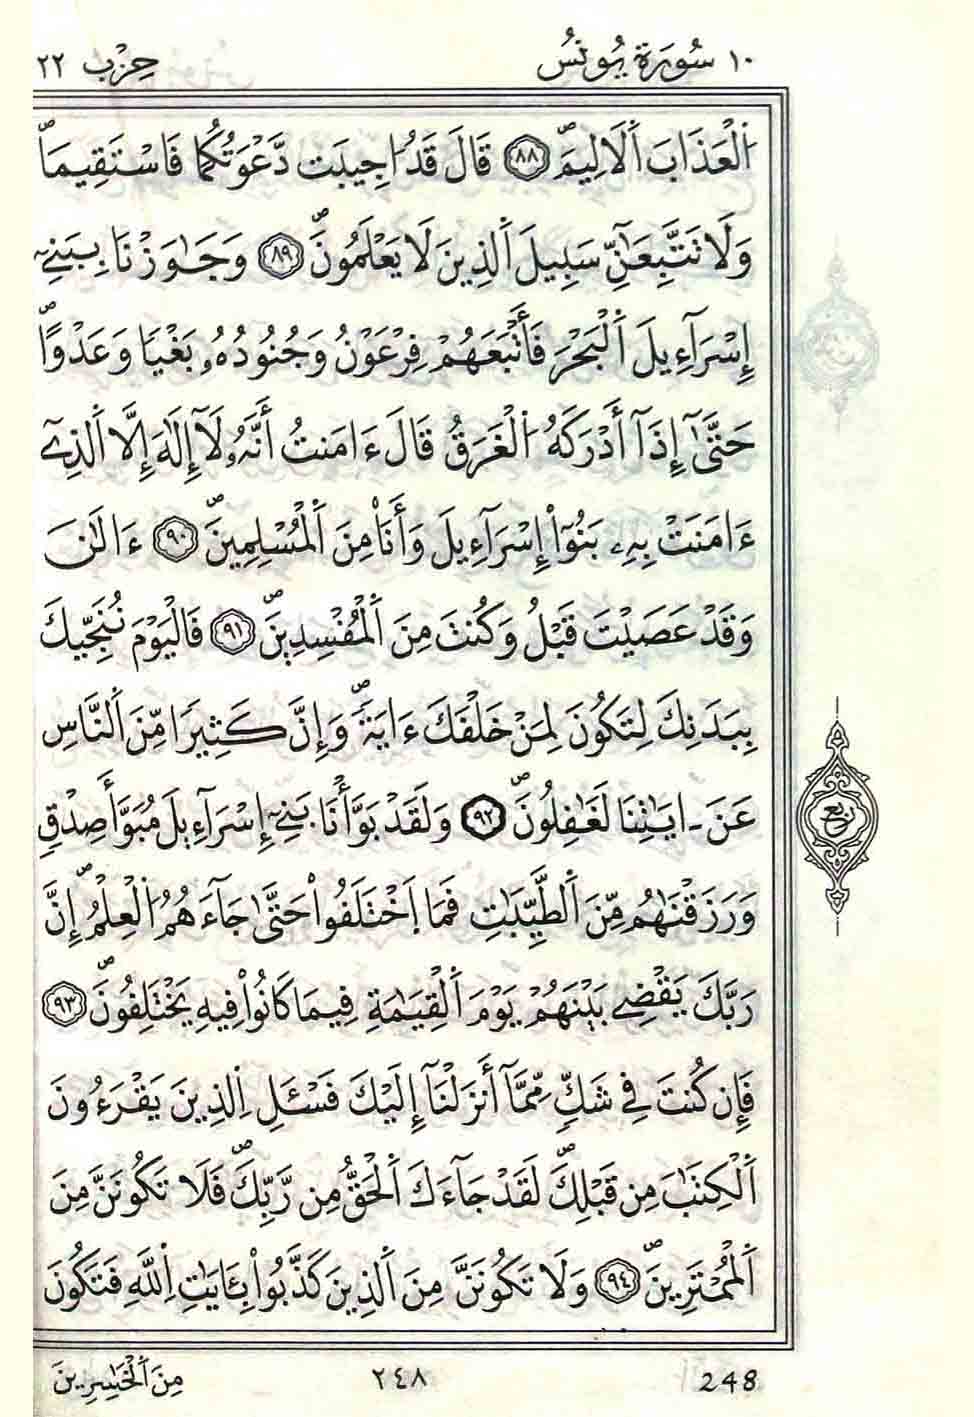 ١٠ سُورَةُ يُونُسَ حِزْب ٢٢
اَ۬لْعَذَابَ اَ۬لَالِيمَۖ ٨٨ قَالَ قَدُ ا۟جِيبَت دَّعْوَتُكُمَا فَاسْتَقِيمَاۖ
وَلَا تَتَّبِعَٰٓنِّ سَبِيلَ اَ۬لذِينَ لَا يَعْلَمُونَۖ ٨٩ وَجَٰوَزْنَا بِبَنِےٓ
إِسْرَآءِيلَ اَ۬لْبَحْرَ فَأَتْبَعَهُمْ فِرْعَوْنُ وَجُنُودُهُۥ بَغْياٗ وَعَدْواًۖ
حَتَّىٰٓ إِذَآ أَدْرَكَهُ اُ۬لْغَرَقُ قَالَ ءَامَنتُ أَنَّهُۥ لَآ إِلَٰهَ إِلَّا اَ۬لذِےٓ
ءَامَنَتْ بِهِۦ بَنُوٓاْ إِسْرَآءِيلَ وَأَنَا۠ مِنَ اَ۬لْمُسْلِمِينَۖ ٩٠ ءَآلَٰنَ
وَقَدْ عَصَيْتَ قَبْلُ وَكُنتَ مِنَ اَ۬لْمُفْسِدِينَۖ ٩١ فَالْيَوْمَ نُنَجِّيكَ
بِبَدَنِكَ لِتَكُونَ لِمَنْ خَلْفَكَ ءَايَةٗۖ وَإِنَّ كَثِيراٗ مِّنَ اَ۬لنَّاسِ
عَنَ اٰيَٰتِنَا لَغَٰفِلُونَۖ ٩٢ وَلَقَدْ بَوَّأْنَا بَنِےٓ إِسْرَآءِيلَ مُبَوَّأَ صِدْقٖ
وَرَزَقْنَٰهُم مِّنَ اَ۬لطَّيِّبَٰتِ فَمَا اَ۪خْتَلَفُواْ حَتَّىٰ جَآءَهُمُ اُ۬لْعِلْمُۖ إِنَّ
رَبَّكَ يَقْضِے بَيْنَهُمْ يَوْمَ اَ۬لْقِيَٰمَةِ فِيمَا كَانُواْ فِيهِ يَخْتَلِفُونَۖ ٩٣
فَإِن كُنتَ فِے شَكّٖ مِّمَّآ أَنزَلْنَآ إِلَيْكَ فَسْـَٔلِ اِ۬لذِينَ يَقْرَءُونَ
اَ۬لْكِتَٰبَ مِن قَبْلِكَۖ لَقَدْ جَآءَكَ اَ۬لْحَقُّ مِن رَّبِّكَۖ فَلَا تَكُونَنَّ مِنَ
اَ۬لْمُمْتَرِينَۖ ٩٤ وَلَا تَكُونَنَّ مِنَ اَ۬لذِينَ كَذَّبُواْ بِـَٔايَٰتِ اِ۬للَّهِ فَتَكُونَ
ربع
مِنَ اَ۬لْخَٰسِرِينَ ٢٤٨ 248